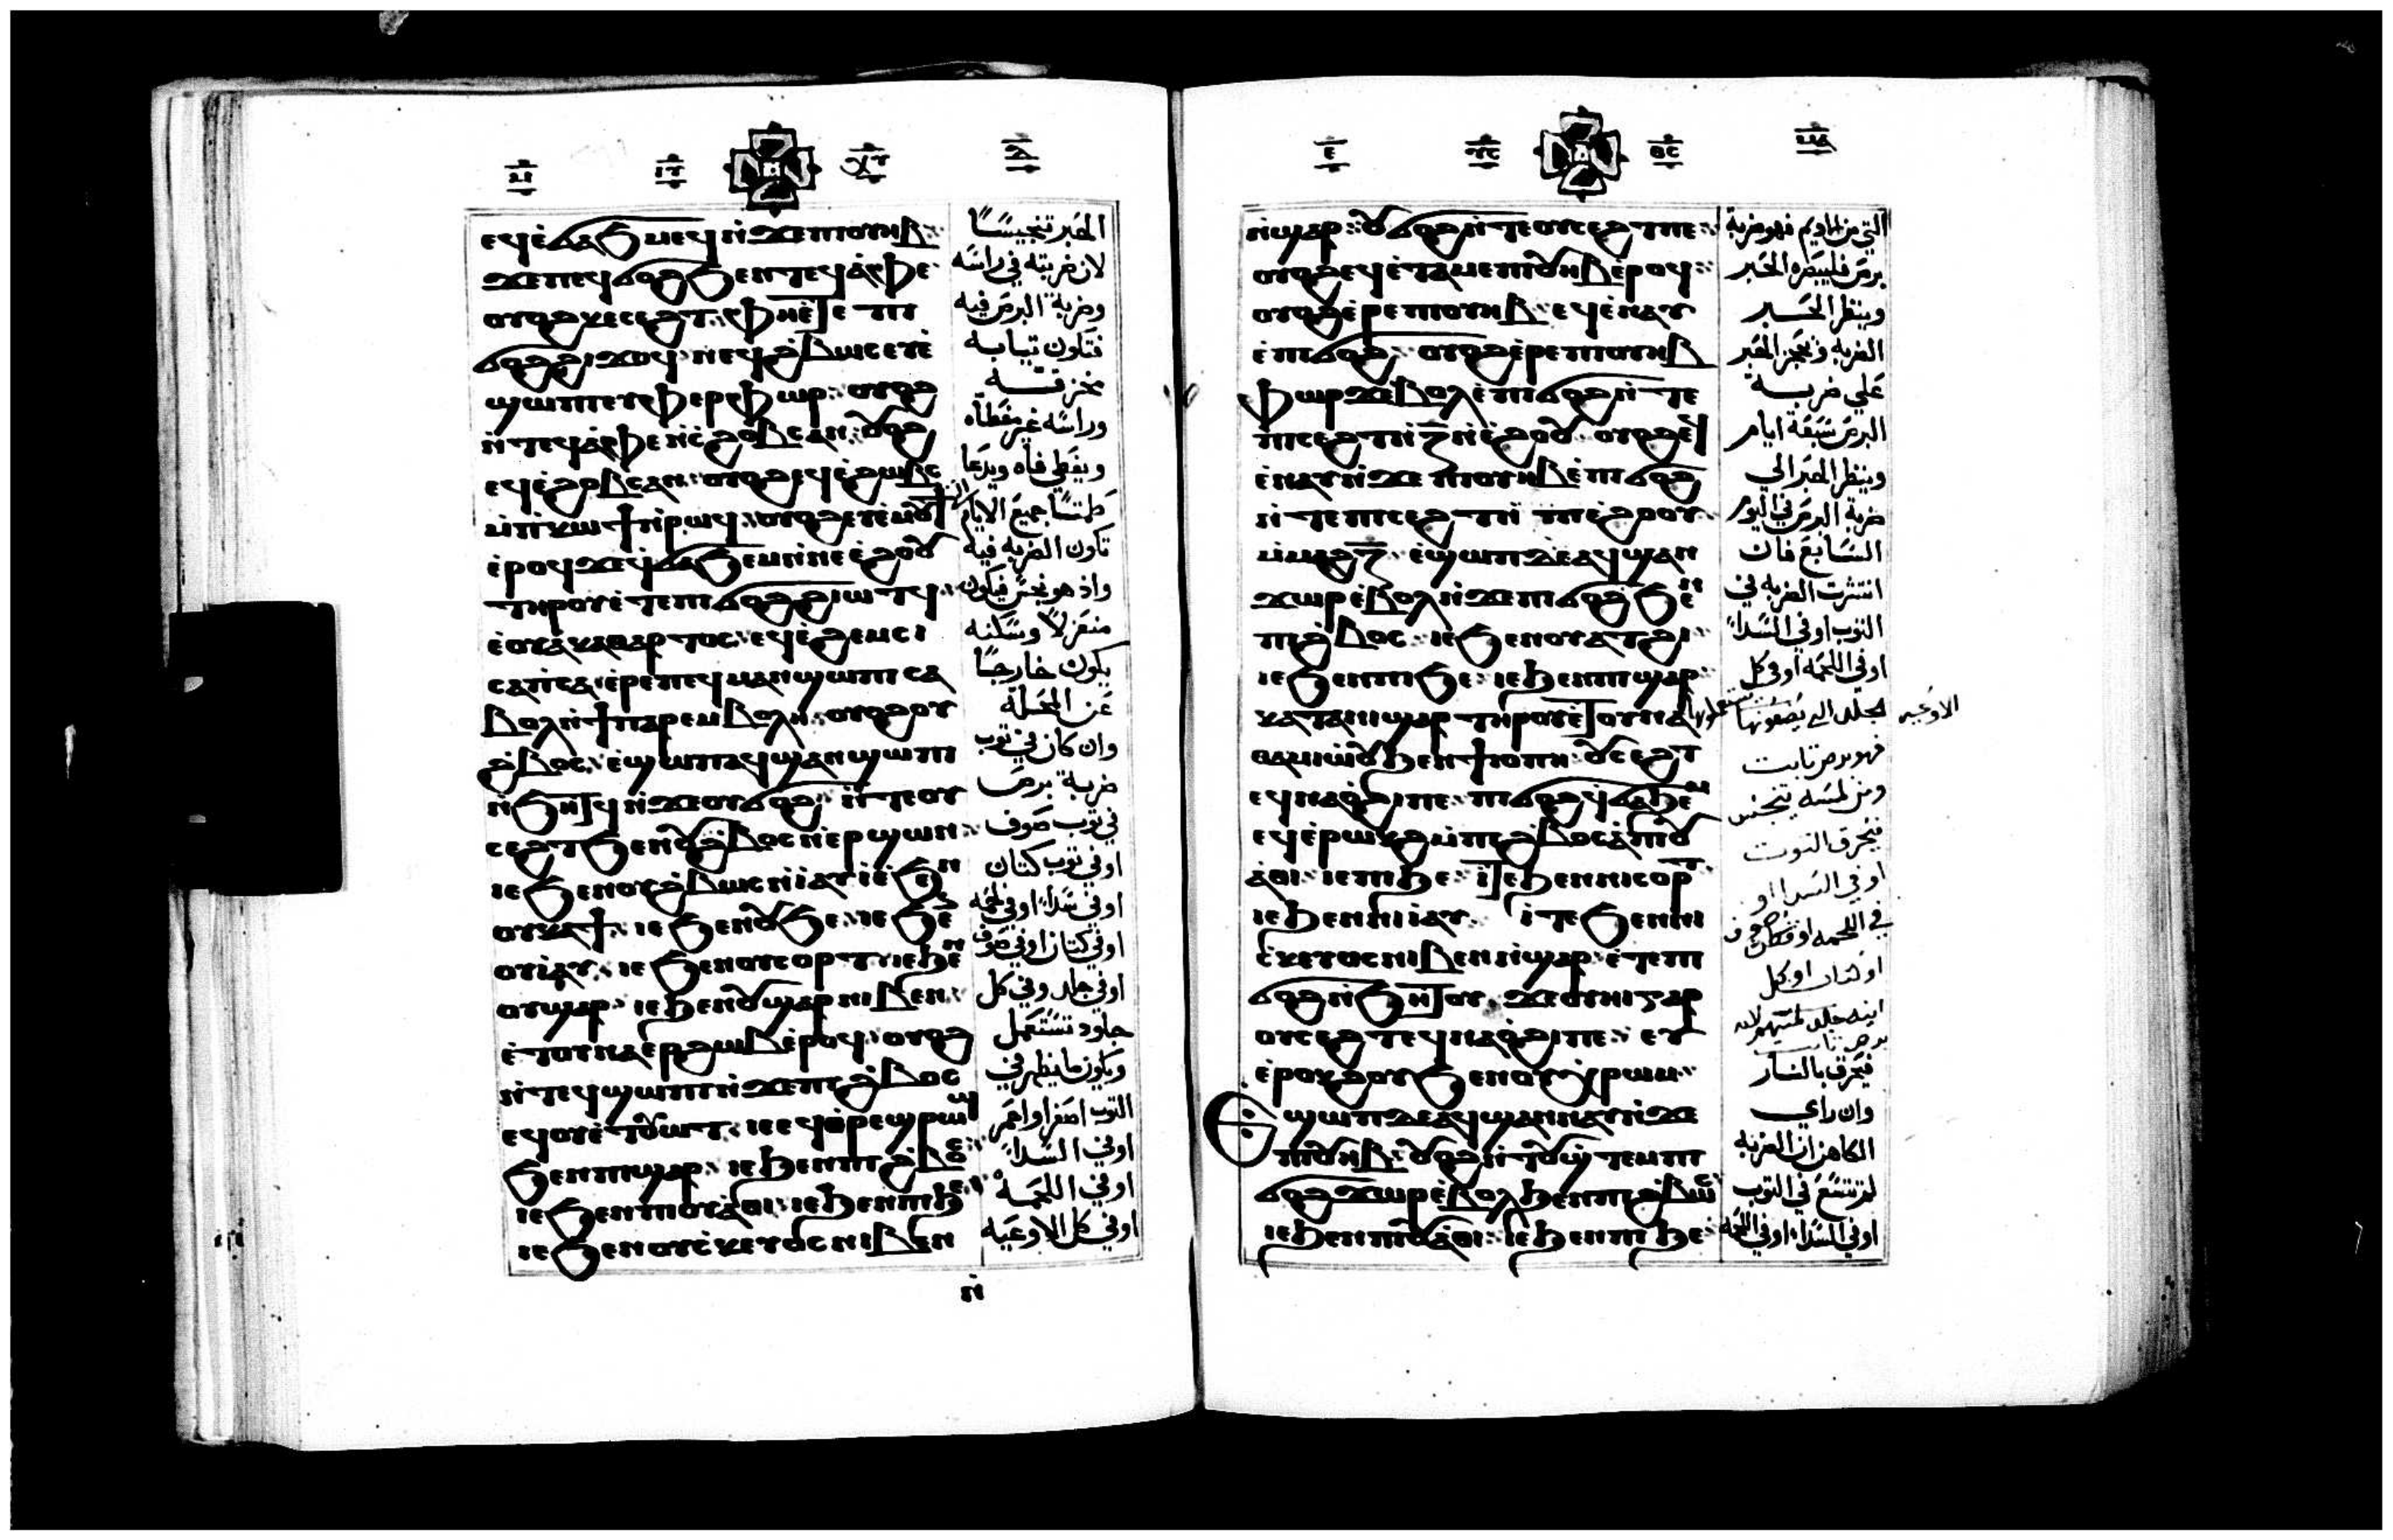 ⲓⲩ ⲭⲩ
ⲉϥⲉ̀ϭⲁϧⲙⲉϥ ⲛ̀ϫⲉ ⲡⲓⲟⲩⲏⲃ
ϫⲉ ⲡⲉϥϭⲟϩ ϧⲉⲛ ⲧⲉϥⲁ̀ⲫⲉ
ⲟⲩⲟϩ ⲕⲉⲥⲉϩⲧ ⲫⲏ ⲉ̀ⲧⲉ ⲡⲓ
ϭⲟϩ ϩⲓϫⲱϥ ⲛⲉϥϩ̀ⲃⲱⲥ ⲉⲩⲉ̀
ϣⲱⲡⲓ ⲉⲩⲫⲉⲣⲫⲱⲣ ⲟⲩⲟϩ
ⲛ̀ⲧⲉϥⲁ̀ⲫⲉ ⲛ̀ⲥ̀ϩⲟⲃⲥ ⲁⲛ ⲟⲩⲟϩ
ⲉϥⲉ̀ϩⲟⲃⲥ ⲁⲛ ⲟⲩⲟϩ ⲉϥⲉ̀ϩⲱⲃⲥ
ⲙ̀ⲡ̀ⲕⲱϯ ⲛ̀ⲣⲱϥ ⲟⲩⲟϩ ⲉⲩⲉ̀ⲙⲟⲩϯ
ⲉ̀ⲣⲟϥ ϫⲉ ϥ̀ϭⲁϧⲉⲙ ⲛ̀ⲛⲉⲉ̀ϩⲟⲟⲩ
ⲧⲏⲣⲟⲩ ⲉ̀ⲧⲉ ⲡⲓϭⲟϩ ϩⲓⲱⲧϥ
ⲉ̀ⲟⲩⲁ̀ⲕⲁⲑⲁⲣⲧⲟⲥ ⲉϥⲉ̀ϩⲉⲙⲥⲓ
ⲥⲁⲡ̀ⲥⲁ ⲉ̀ⲣⲉ ⲡⲉϥⲙⲁⲛ̀ϣⲱⲡⲓ ⲥⲁ
ⲃⲟⲗ ⲛ̀ϯⲡⲁⲣⲉⲙⲃⲟⲗⲏ ⲟⲩⲟϩ ⲟⲩ
ϩ̀ⲃⲟⲥ ⲉ̀ϣⲱⲡ ⲁϥϣⲁⲛϣⲱⲡⲓ
ⲛ̀ϧⲏⲧϥ ⲛ̀ϫⲉ ⲟⲩϭⲟϩ ⲛ̀ⲧⲉ ⲟⲩ
ⲥⲉϩⲧ ϧⲉⲛ ⲟⲩϩ̀ⲃⲟⲥ ⲛ̀ⲉⲣϣⲱⲛ
ⲓⲉ ϧⲉⲛ ⲟⲩϩ̀ⲃⲱⲥ ⲛ̀ⲓⲁⲩ ⲓⲉ ϧⲉⲛ
ⲟⲩϣⲧⲓ ⲓⲉ ϧⲉⲛ ⲟⲩϧⲉ ⲓⲉ ϧⲉⲛ
ⲟⲩⲓ̀ⲁⲩ ⲓⲉ ϧⲉⲛ ⲟⲩⲥⲟⲣⲧ ⲓⲉ ϧⲉⲛ
ⲟⲩϣⲁⲣ ⲓⲉ ϧⲉⲛ ⲟⲩϣⲁⲣ ⲛⲓⲃⲉⲛ
ⲉ̀ⲧⲟⲩⲛⲁⲉⲣϩⲱⲃ ⲉ̀ⲣⲟϥ ⲟⲩⲟϩ
ⲛ̀ⲧⲉϥϣⲱⲡⲓ ⲛ̀ϫⲉ ⲡⲓϩ̀ⲃⲟⲥ
ⲉϥⲟⲩⲉ̀ⲧⲟⲩⲱⲧ ⲓⲉ ⲉϥⲑ̀ⲣⲉϣⲣⲱϣ
ϧⲉⲛ ⲡⲓϣⲁⲣ ⲓⲉ ϧⲉⲛ ⲡⲓϩ̀ⲃⲟⲥ
ⲓⲉ ϧⲉⲛ ⲡⲓⲟⲩⲁ̀ⲑⲓ ⲓⲉ ϧⲉⲛ ⲡⲓϧⲉ
ⲓⲉ ϧⲉⲛ ⲟⲩⲥ̀ⲕⲉⲩⲟⲥ ⲛⲓⲃⲉⲛ
ⲛ̀
الحبر تنجيسًا
لان ضربته في راسه
وضربة البرص فيه
فتكون تيابه
مخزقه
وراسه غير مغطاه
ويغطي فاه ويدعا
طمتسًا جميع الايام التي
تكون الضربه فيه
واذ هو نجس فيكون
منعزلاً وسكنه
يكون خارجًا
عن المحلة
وان كان في توب
ضربة برص
في توب صوف
او في توب كتان
او في سداء او في لحمه
او في كتان او في صوف
او في جلد وفي كل
جلود تستعمل
ويكون ما يظهر في
التوب اصفر او احمر
او في السداء
او في اللحمة
او في كل الاوعيه
ⲩⲥ ⲑⲥ
ⲛ̀ϣⲁⲣ ⲟⲩϭⲟϩ ⲛ̀ⲧⲉ ⲟⲩⲥⲉϩⲧ ⲡⲉ
ⲟⲩⲟϩ ⲉϥⲉ̀ⲧⲁⲙⲉ ⲡⲓⲟⲩⲏⲃ ⲉ̀ⲣⲟϥ
ⲟⲩⲟϩ ⲉ̀ⲣⲉ ⲡⲓⲟⲩⲏⲃ ⲉϥⲉ̀ⲛⲁⲩ
ⲉ̀ⲡⲓϭⲟϩ ⲟⲩⲟϩ ⲉ̀ⲣⲉ ⲡⲓⲟⲩⲏⲃ
ⲫⲱⲣϫ ⲉⲃⲟⲗ ⲉ̀ⲡⲓϭⲟϩ ⲛ̀ⲧⲉ
ⲡⲓⲥⲉϩⲧ ⲛ̀ⲍ̅ ⲛ̀ⲉ̀ϩⲟⲟⲩ ⲟⲩⲟϩ ⲉϥ
ⲉ̀ⲛⲁⲩ ⲛ̀ϫⲉ ⲡⲓⲟⲩⲏⲃ ⲉ̀ⲡⲓϭⲟϩ
ⲛ̀ⲧⲉ ⲡⲓⲥⲉϩⲧ ϧⲉⲛ ⲡⲓⲉ̀ϩⲟⲟⲩ
ⲙ̀ⲙⲁϩⲍ̅ ⲉ̀ϣⲱⲡ ⲇⲉ ⲁϥϣⲁⲛ
ϫⲱⲣ ⲉ̀ⲃⲟⲗ ⲛ̀ϫⲉ ⲡⲓϭⲟϩ ϧⲉⲛ
ⲡⲓϩ̀ⲃⲟⲥ ⲓⲉ ϧⲉⲛ ⲟⲩⲁⲑⲓ
ⲓⲉ ϧⲉⲛ ⲡⲓϧⲉ ⲓⲉ ϧⲉⲛ ⲡⲓϣⲁⲣ
ⲕⲁⲧⲁ ⲛⲓϣⲁⲣ ⲧⲏⲣⲟⲩ ⲉ̀ⲧⲟⲩⲛⲁ
ⲑⲁⲙⲓⲱⲟⲩ ϧⲉⲛ ϯⲓⲟⲡⲏ ⲟⲩⲥⲉϩⲧ
ⲉϥⲛⲁⲟ̀ϩⲓ ⲡⲉ ⲡⲓϭⲟϩ ϥ̀ϭⲁϧⲉⲙ
ⲉϥⲉ̀ⲣⲱⲕϩ ⲙ̀ⲡⲓϩ̀ⲃⲟⲥ ⲁ ⲡⲓⲟⲩ
ⲁ̀ⲑⲓ ⲓⲉ ⲡⲓϧⲉ ⲓⲧⲉ ϧⲉⲛ ⲛⲓⲥⲟⲣⲧ
ⲓⲉ ϧⲉⲛ ⲛⲓⲓ̀ⲁⲩ ⲓⲧⲉ ϧⲉⲛ ⲛⲓ
ⲥ̀ⲕⲉⲩⲟⲥ ⲛⲓⲃⲉⲛ ⲛ̀ϣⲁⲣ ⲉ̀ⲧⲉ ⲡⲓ
ϭⲟϩ ⲛ̀ϧⲏⲧⲟⲩ ϫⲉ ⲟⲩⲏⲓ ⲅⲁⲣ
ⲟⲩⲥⲉϩⲧ ⲉϥⲛⲁⲟ̀ϩⲓ ⲡⲉ ⲉⲩ
ⲉ̀ⲣⲟⲕϩⲟⲩ ϧⲉⲛ ⲟⲩⲭ̀ⲣⲱⲙ
Ⲉϣⲱⲡ ⲇⲉ ⲁϥϣⲁⲛⲛⲁⲩ ⲛ̀ϫⲉ
ⲡⲓⲟⲩⲏⲃ ⲟⲩⲟϩ ⲛ̀ⲧⲟⲩϣ̀ⲧⲉⲙ ⲡⲓ
ϭⲟϩ ϫⲱⲣ ⲉ̀ⲃⲟⲗ ϧⲉⲛ ⲡⲓϩ̀ⲃⲱⲥ
ⲓⲉ ϧⲉⲛ ⲡⲓⲟⲩⲁ̀ⲑⲓ ⲓⲉ ϧⲉⲛ ⲡⲓϧⲉ
التي من الاديم فهو ضربة
برص فليبصره الحبر
وينظر الحبر
الضربه ويحجز الحبر
علي ضربة
البرص سبعة ايام
وينظر الحبر الي
ضربة البرص في اليوم
السابع فان
انتشرت الضربه في
التوب او في السداء
او في اللحمه او في كل
الجلد التي يصنعونها
الاوعيه
فهو برص تابت
ومن لمسه يتنجس
فيحرق التوب
او في السدا او
في اللحمه او صوف
او كتان او كل
فيحرق بالنار
وان راي
الكاهن ان الضربه
لم تتسع في التوب
او في السداء او في اللحمه